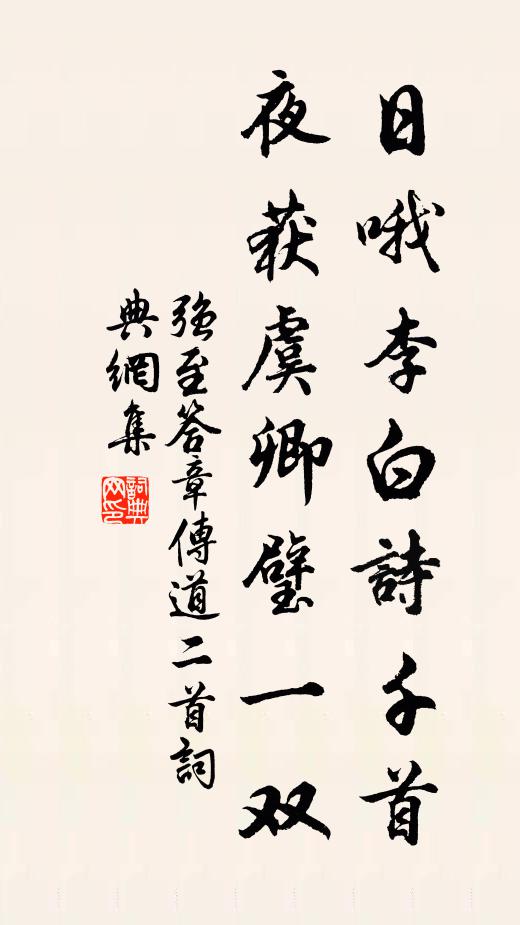 日哦李白詩千首
夜获虞卿璧一双
强至答章傳道二首詞
典網集
詞典
网印